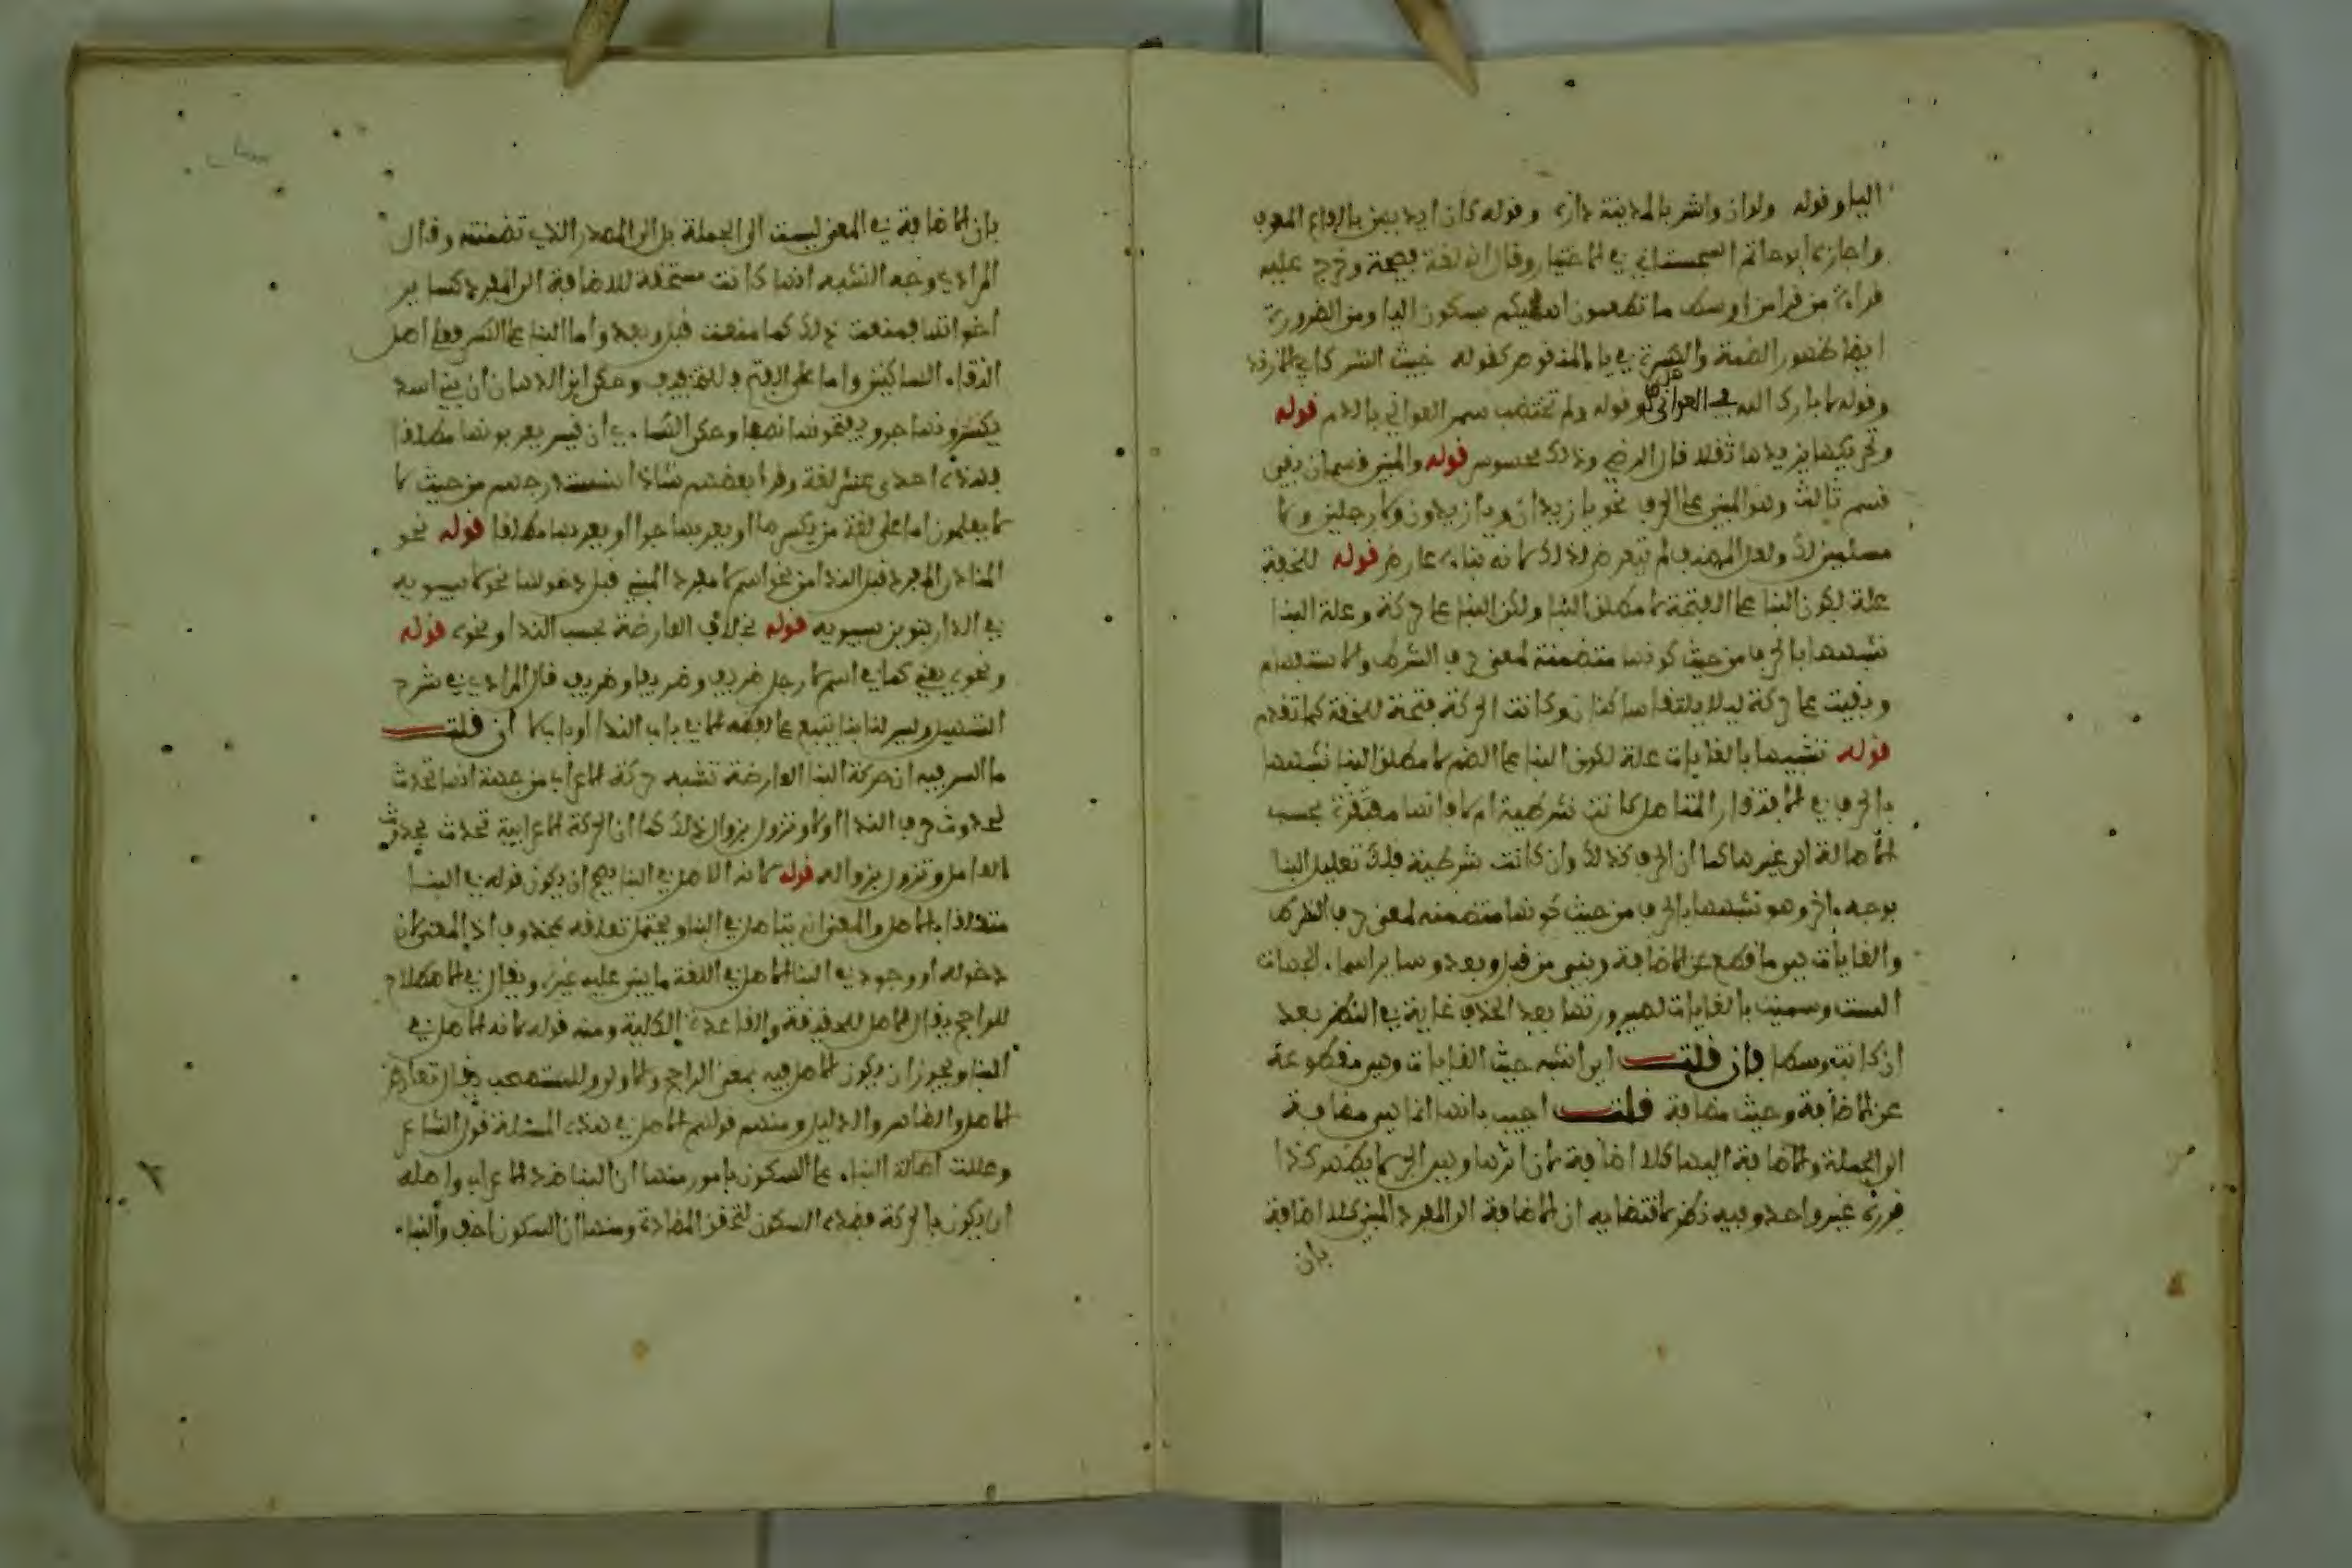 اليا وقوله ولو ان واش بالمدينة داره وقوله كان ايديهن بالقاع القرق
واجازه ابو حاتم السجستاني في الاختيار وقال انه لغة فصيحة وخرج عليه
قراءة من قرا من اوسط ما تطعمون اهليكم بسكون اليا ومن الضرورة
ايضا ظهور الضمة والكسرة في يا المنقوص كقوله خبيث الثرى كابي الازند
وقوله لا بارك الله في الغواني هل وقوله ولم تختضب سمر العوالي بالدم قوله
وتحريكها يزيدها ثقلا قال الرضي وذلك محسوس قوله والمبني قسمان بقي
قسم ثالث وهو المبني على الحرف نحو يا زيدان ويا زيدون ولا رجلين ولا
مسلمين لك ولعل المصنف لم يتعرض لذلك لانه بناء عارض قوله للخفة
علة لكون البنا على الفتحة لا مطلق البنا ولكن البنا على حركة وعلة البنا
شبهها بالحرف من حيث كونها متضمنة لمعنى حرف الشرط والاستفهام
وبنيت على حركة ليلا يلتقا ساكنان وكانت الحركة فتحة للخفة كما تقدم
قوله تشبيها بالغايات علة لكون البنا على الضم لا مطلق البنا لشبهها
بالحرف في الافتقار المتاصل كانت شرطية ام لا فانها مفتقرة بحسب
الاصالة الى غيرها كما ان الحرف كذلك وان كانت شرطية فلك تعليل البنا
بوجه ءاخر وهو شبهها بالحرف من حيث كونها متضمنة لمعنى حرف الشرط
والغايات هي ما قطع عن الاضافة وبني من قبل وبعد وساير اسماء الجهات
الست وسميت بالغايات لصيرورتها بعد الحذف غاية في النطق بعد
ان كانت وسطا فان قلت اين اشبه حيث الغايات وهي مقطوعة
عن الاضافة وحيث مضافة قلت اجيب بانها انما هي مضافة
الى الجملة والاضافة اليها كلا اضافة لان اثرها وهي الجر لا يظهر كذا
قرره غير واحد وفيه نظر لاقتضايه ان الاضافة الى المفرد المبني كلا اضافة
بان
بان الاضافة في المعنى ليست الى الجملة بل الى المصدر الذي تضمنته وقال
المرادي وجه الشبه انها كانت مستحقة للاضافة الى المفرد كساير
اخواتها فمنعت ذلك كما منعت قبل وبعد واما البنا على الكسر فعلى اصل
التقاء الساكنين واما على الفتح فللتخفيف وحكى ابن الدهان ان بني اسد
يكسرونها جرا ويفتحونها نصبا وحكى الكساءي ان قيس يعربونها مطلقا
فهذه احدى عشر لغة وقرا بعضهم شاذا سنستدرجهم من حيث لا
لا يعلمون اما على لغة من يكسرها او يعربها جرا او يعربها مطلقا قوله نحو
المنادى المفرد قبل الندا من نحو اسم لا مفرد المبني قبل دخولها نحو لا سيبويه
في الدار بتنوين سيبويه قوله بخلاف العارضة بحسب الندا ونحوه قوله
ونحوه يعني كما في اسم لا رجل ظريف وظريفا وظريف قال المرادي في شرح
التسهيل وليس لنا بنا يتبع على لفظه الا في باب الندا او باب لا ان قلت
ما السر فيه ان حركة البنا العارضة تشبه حركة الاعراب من جهة انها تحدث
لحدوث حرف الندا او لا وتزول بزوال ذلك كما ان الحركة الاعرابية تحدث بحدوث
العامل وتزول بزواله قوله لانه الاصل في البنا يصح ان يكون قوله في البنا
متعلقا بالاصل والمعنى انه يتاصل في البنا ويحتمل تعلقه بمحذوف اذ المعنى لان
دخوله او وجوده في البنا الاصل في اللغة ما يبنى عليه غيره ويقال في الاصطلاح
للراجح يقال الاصل للحقيقة والقاعدة الكلية ومنه قوله لانه الاصل في
البنا ويجوز ان يكون الاصل فيه بمعنى الراجح والاولى وللمستصحب يقال تعارض
الاصل والظاهر والدليل ومنهم قولهم الاصل في هذه المسئلة قول الشاعر
وعللت اصالة البناء على السكون بامور منها ان البنا ضد الاعراب واصله
ان يكون بالحركة فضده السكون لتحقق المضادة ومنها ان السكون اخف والبناء